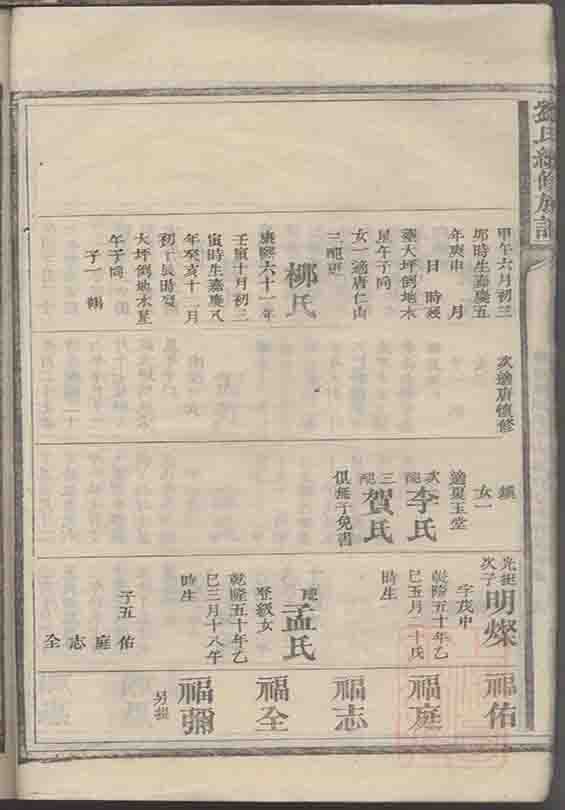 氏續修族譜
甲午六月初三
卯時生嘉慶五
年庚申 月
日 時歿
葬大坪倒地木
星午子向
女一適唐仁山
三配更
柳氏
康熙六十一年
壬寅十月初三
寅時生嘉慶八
年癸亥十二月
初十辰時歿
大坪倒地木星
午子向
子一 輯
次適唐慎修
鎮
女一
適夏玉堂
次配李氏
三配賀氏
俱無子免書
光挺
次子
明燦
字茂中
乾隆五十年乙
巳五月二十戌
時生
配孟氏
登級女
乾隆五十年乙
巳三月十八午
時生
子五 佑
庭
志
全
福佑
福庭
福志
福全
福彌
另提